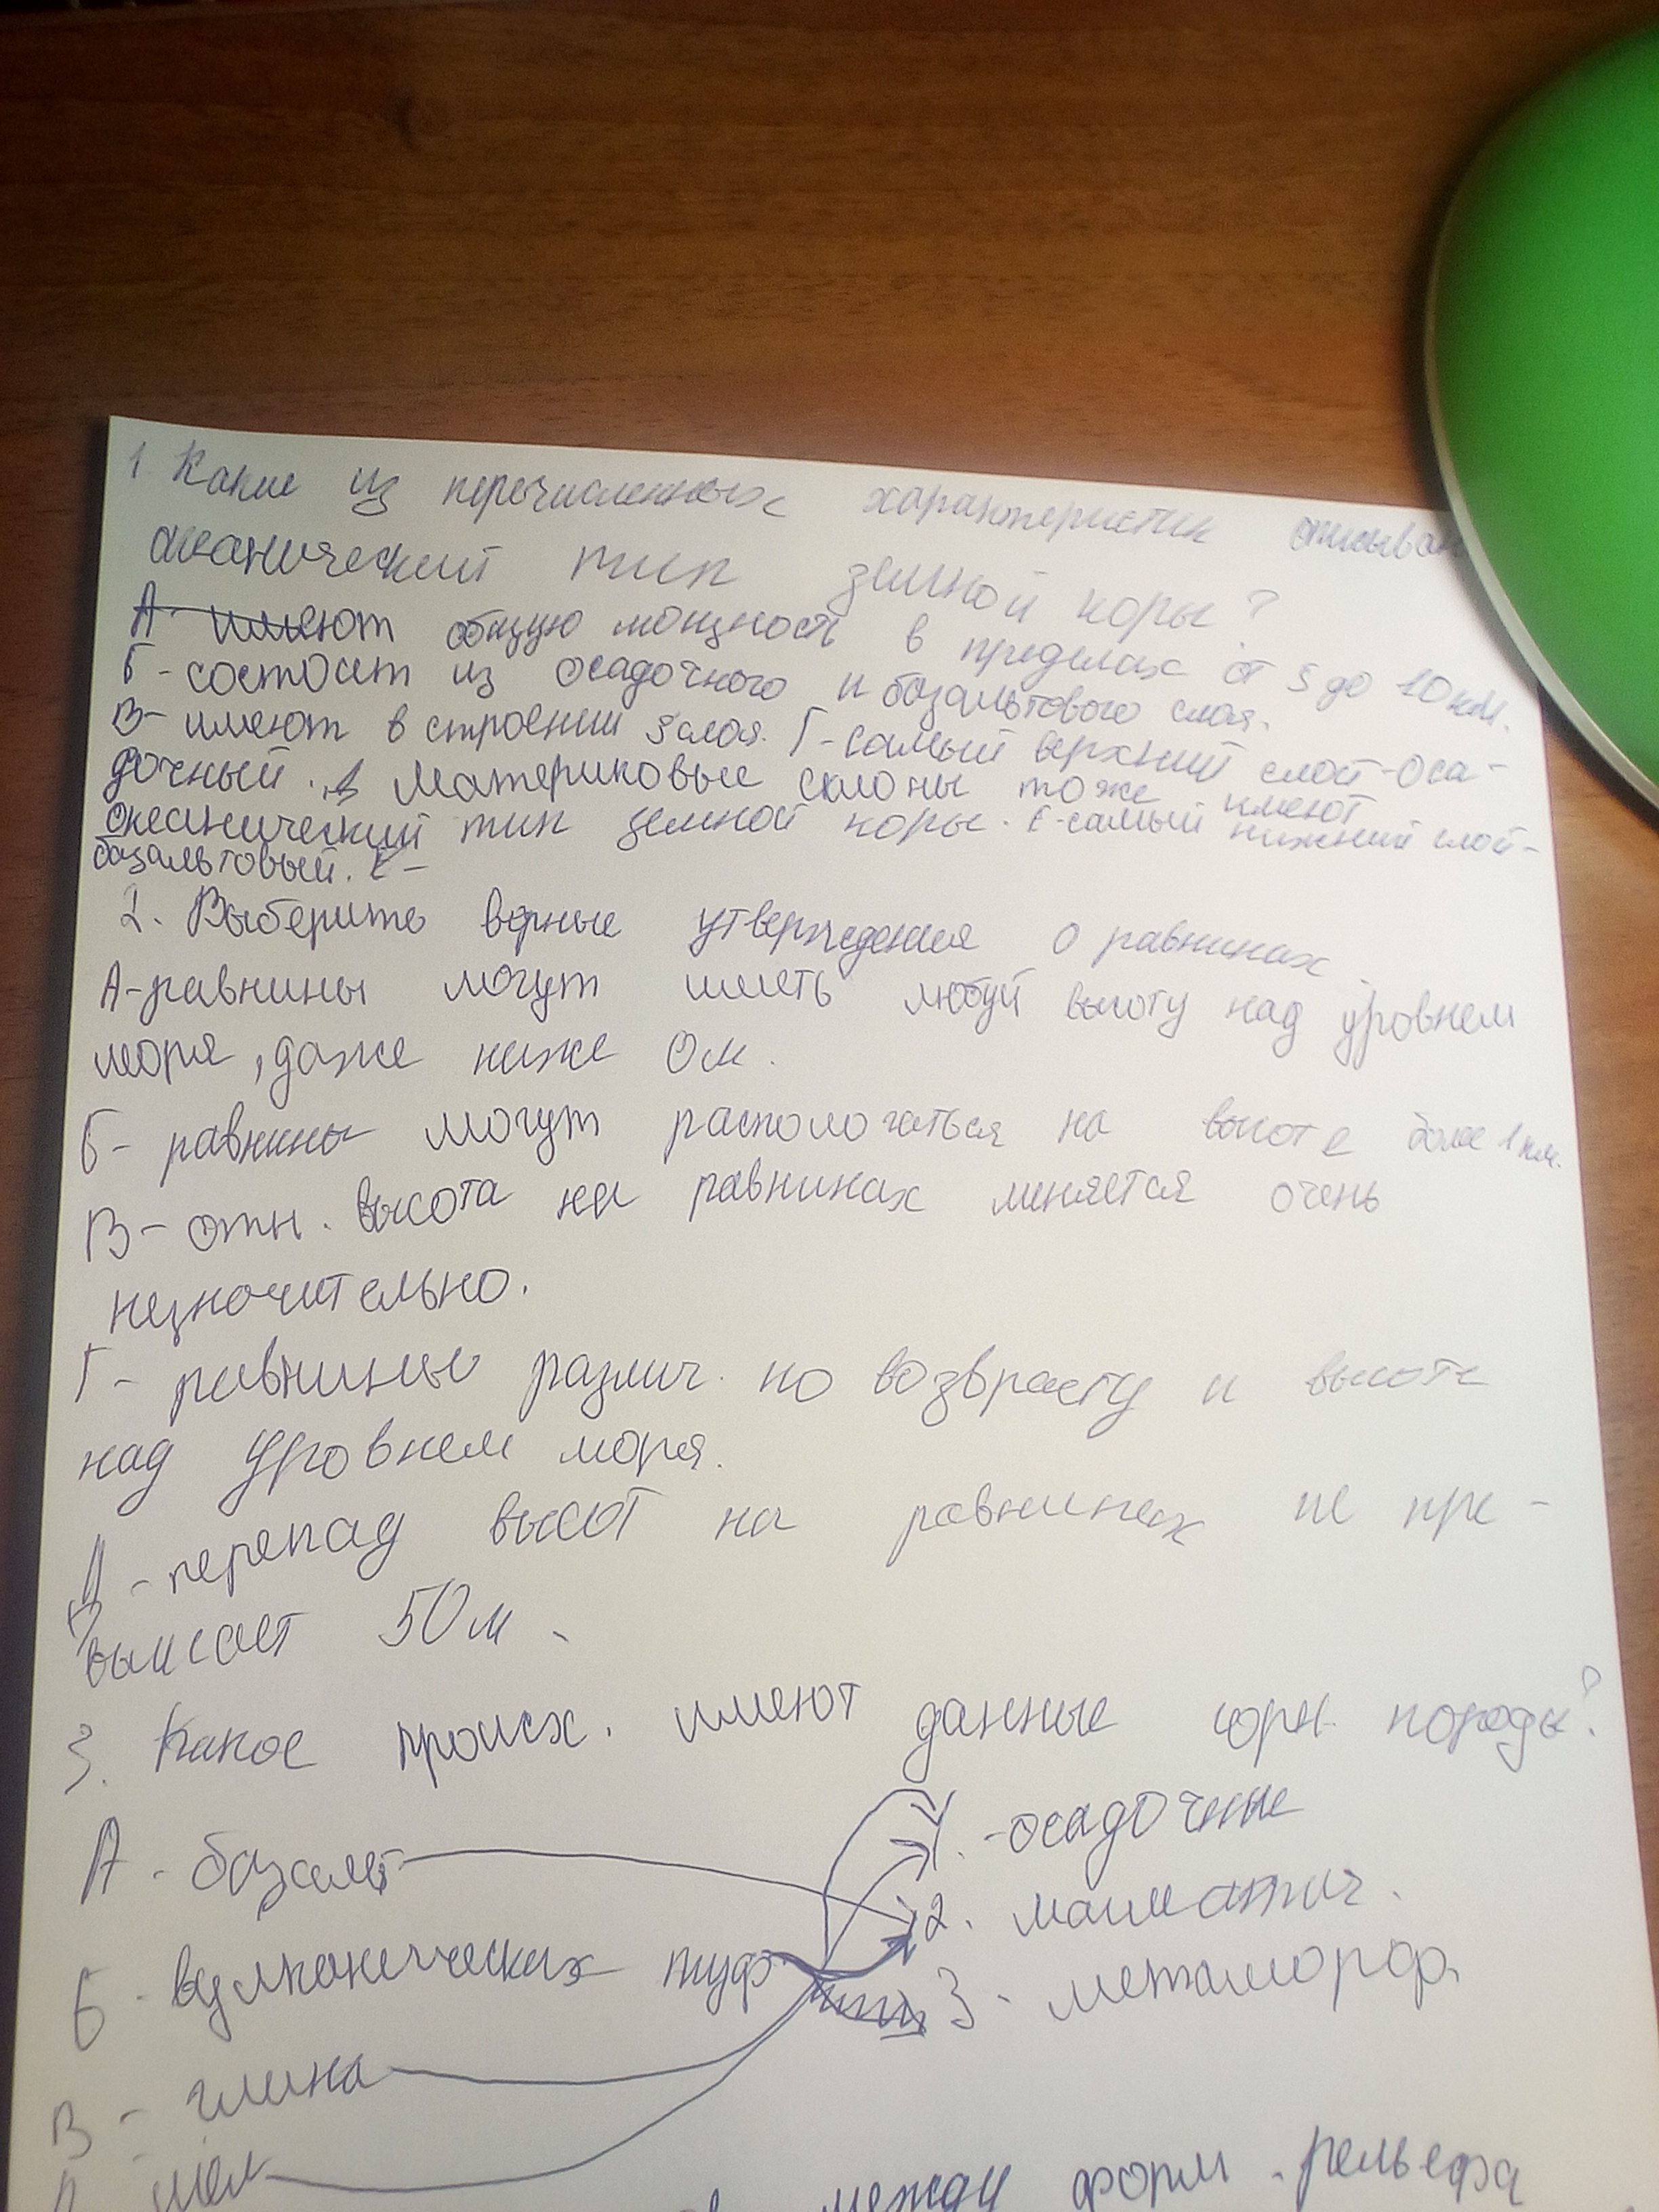 1. Какие из перечисленных характеристик описываю
океанический тип земной коры?
А- имеют общую мощность в пределах от 5 до 10 км.
Б - состоит из осадочного и базальтового слоя.
В- имеют в строении 3 слоя. Г-самый верхний слой-оса-
дочный. Д Материковые склоны тоже имеют
океанический тип земной коры. Е-самый нижний слой-
базальтовый. Е-
2. Выберите верные утверждения о равнинах.
А-равнины могут иметь любуй высоту над уровнем
моря, даже ниже 0м.
Б- равнины могут распологаться на высоте более 1 км.
В- отн. высота на равнинах меняется очень
незночительно.
Г- равнины различ. по возврасту и высоте
над уровнем моря.
Д - перепад высот на равнинах не пре-
вышает 50м.
3. Какое происх. имеют данные горн. породы?
А - базальт
1. - осадочные
2. магматич.
Б - вулканических туф
3 - метаморф.
В - глина
мел
между форм. рельефа